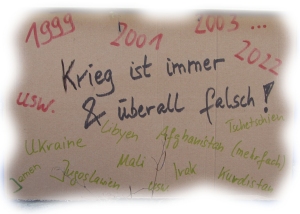 1999 2001 2003 ... 2022
Krieg ist immer
usw. & überall falsch!
Ukraine Libyen Afghanistan Tschetschenien
(mehrfach)
Jemen Jugoslawien Mali Irak Kurdistan
usw.